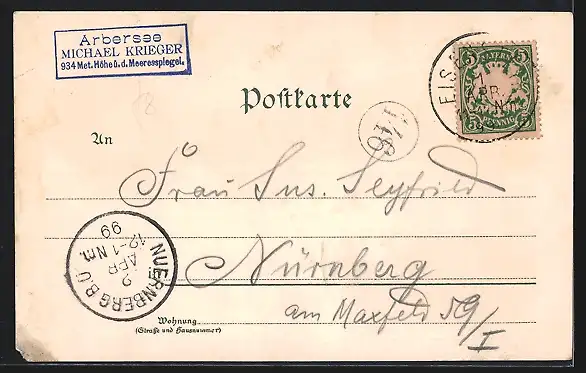 Arbersee
MICHAEL KRIEGER
934 Met. Höhe ü. d. Meeresspiegel.
Postkarte
BAYERN
5 5
5 PFENNIG 5
EISEN
1
APR
An
Frau Sus. Seyfried
Nürnberg
am Maxfeld 59/I
NUERNBERG B.O.
2
APR
12-1 Nm.
99
Wohnung
(Straße und Hausnummer)